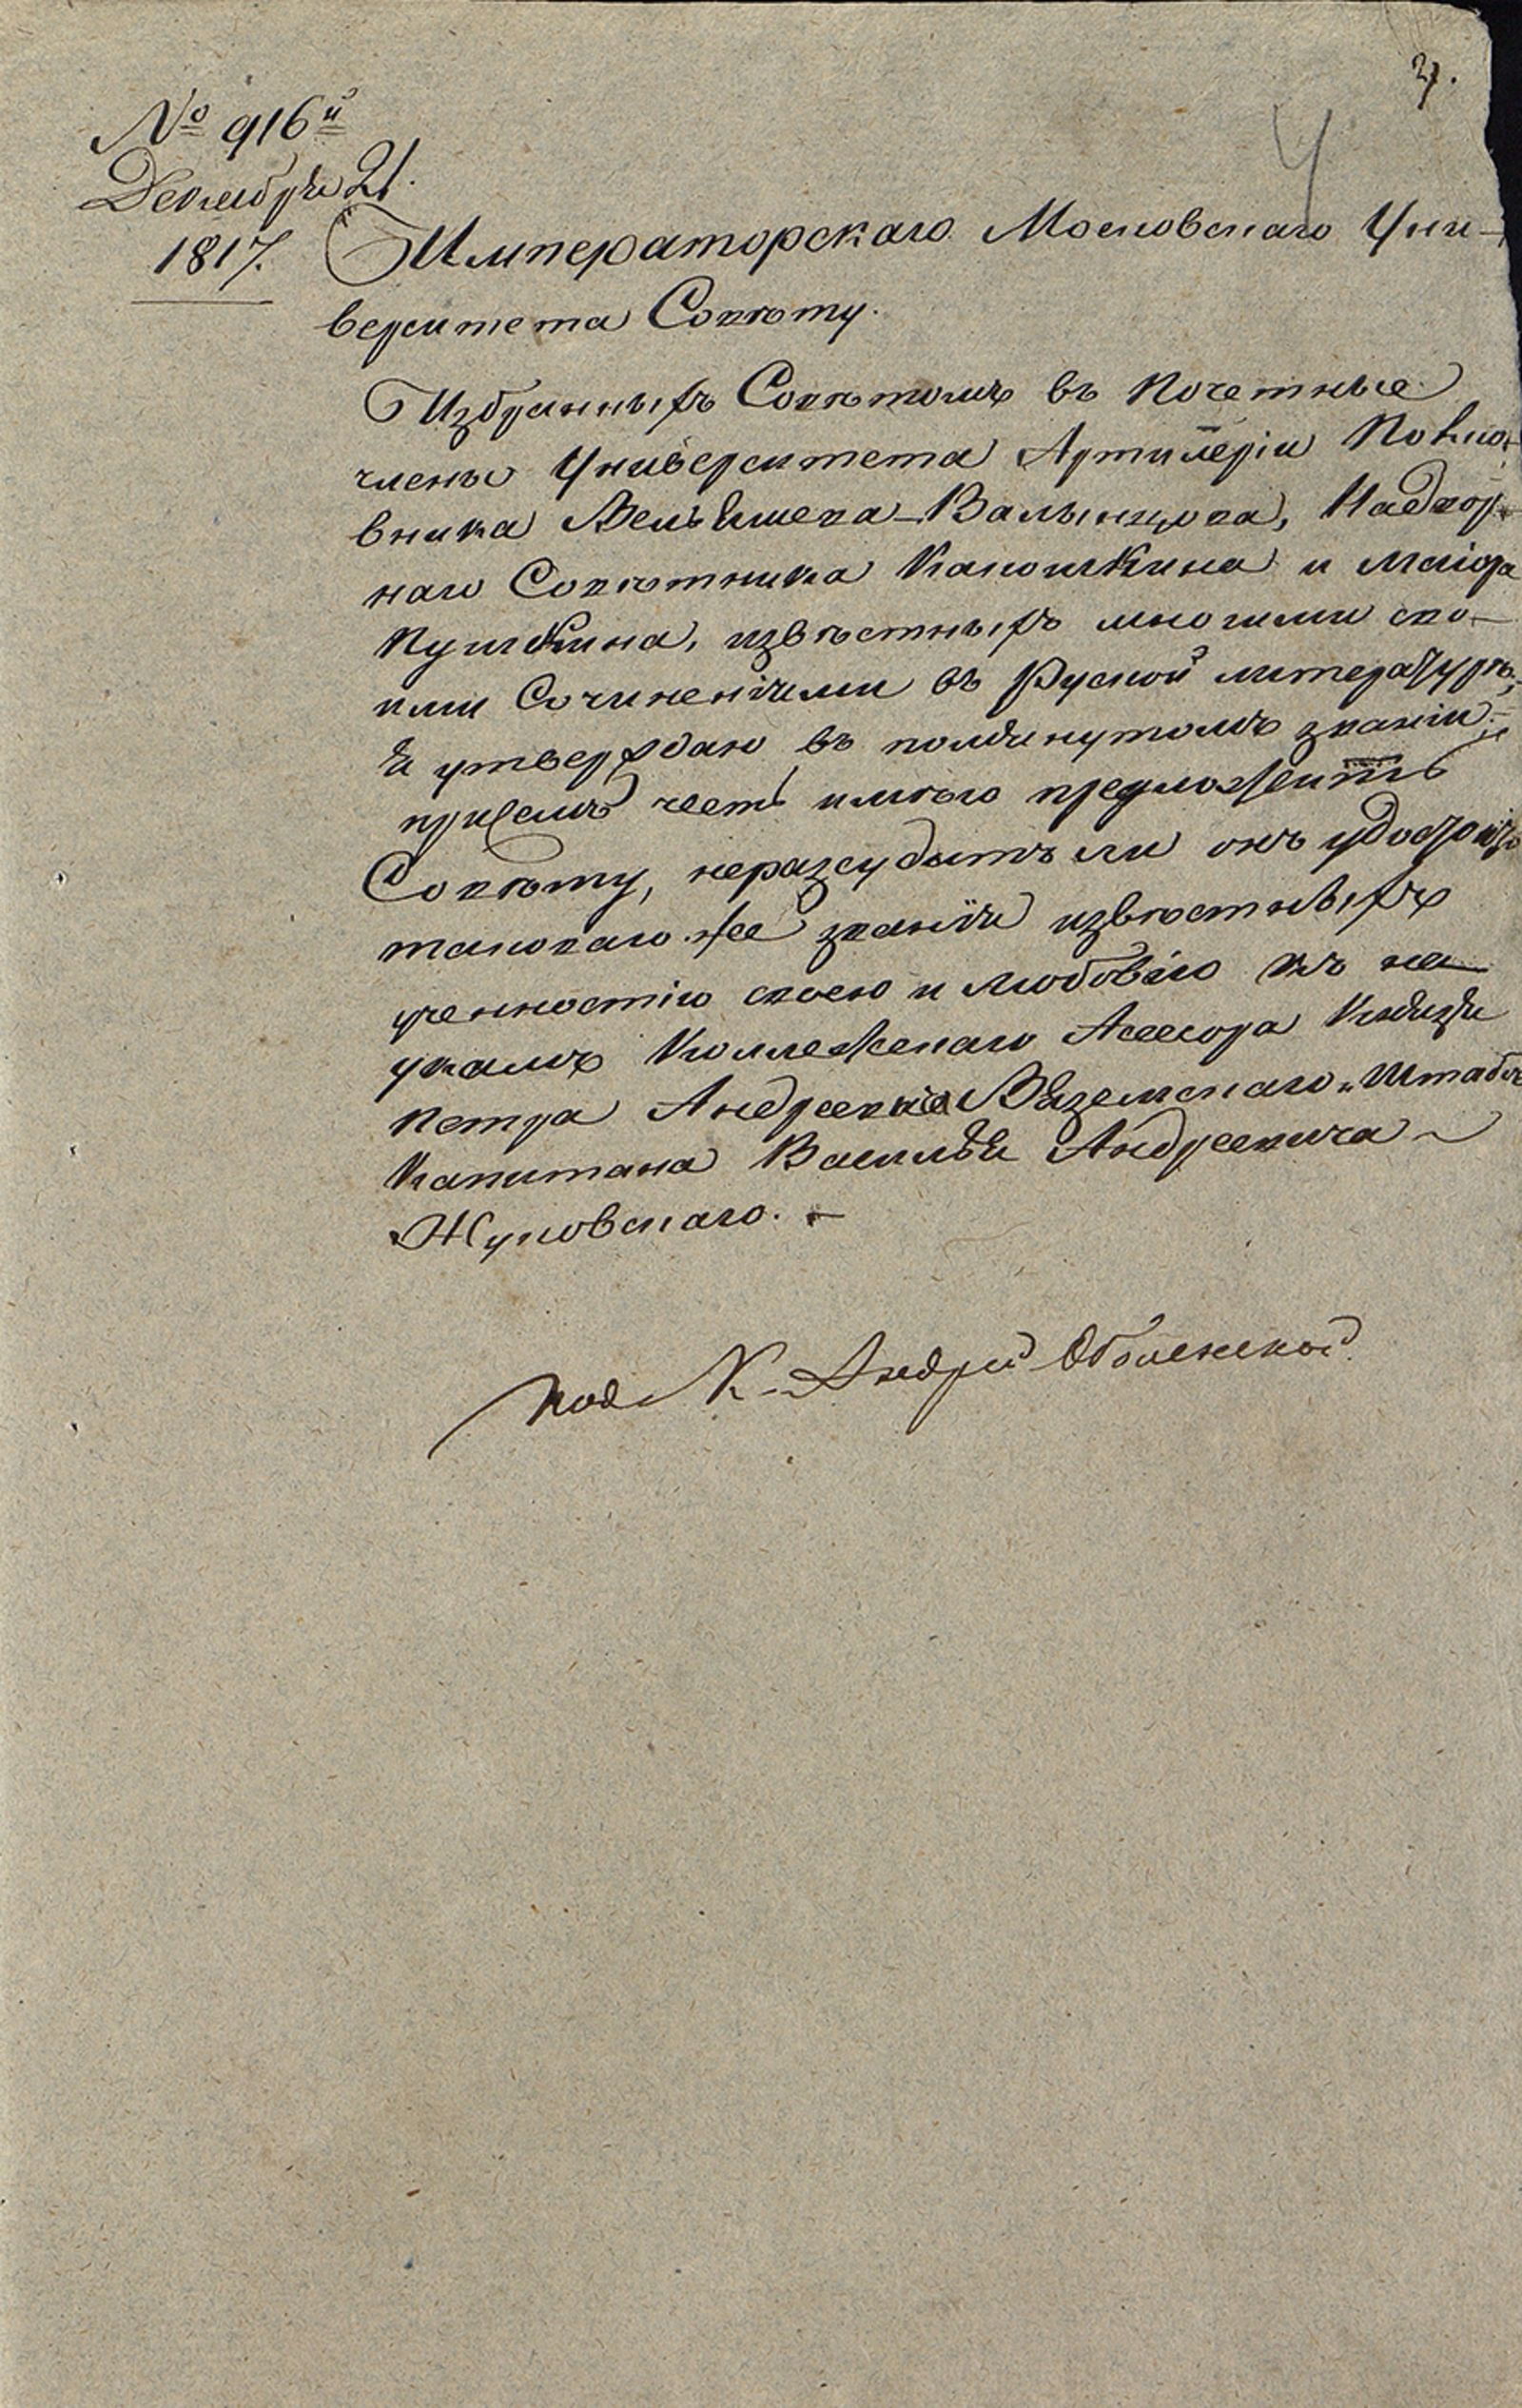 27.
4
№ 916й
Декабря 21.
1817.
Императорскаго Московскаго Уни-
верситета Совѣту.
Избранныхъ Совѣтомъ въ почетные
члены Университета Артилеріи Полко-
вника Вельяшева-Валынцова, Надвор-
наго Совѣтника Какошкина и Маіора
Пушкина, извѣстныхъ многими сво-
ими Сочиненіями въ Руской литературѣ,
я утверждаю въ помянутомъ званіи;
при семъ честь имѣю предложить
Совѣту, неразсудитъ ли онъ удостоить
таковаго же званія извѣстныхъ
ученностію своею и любовію къ на
укамъ Коллежскаго Асессора Князя
Петра Андреевича Вяземскаго и Штабсъ
Капитана Василья Андреевича
Жуковскаго.
К. Андрей Оболенской